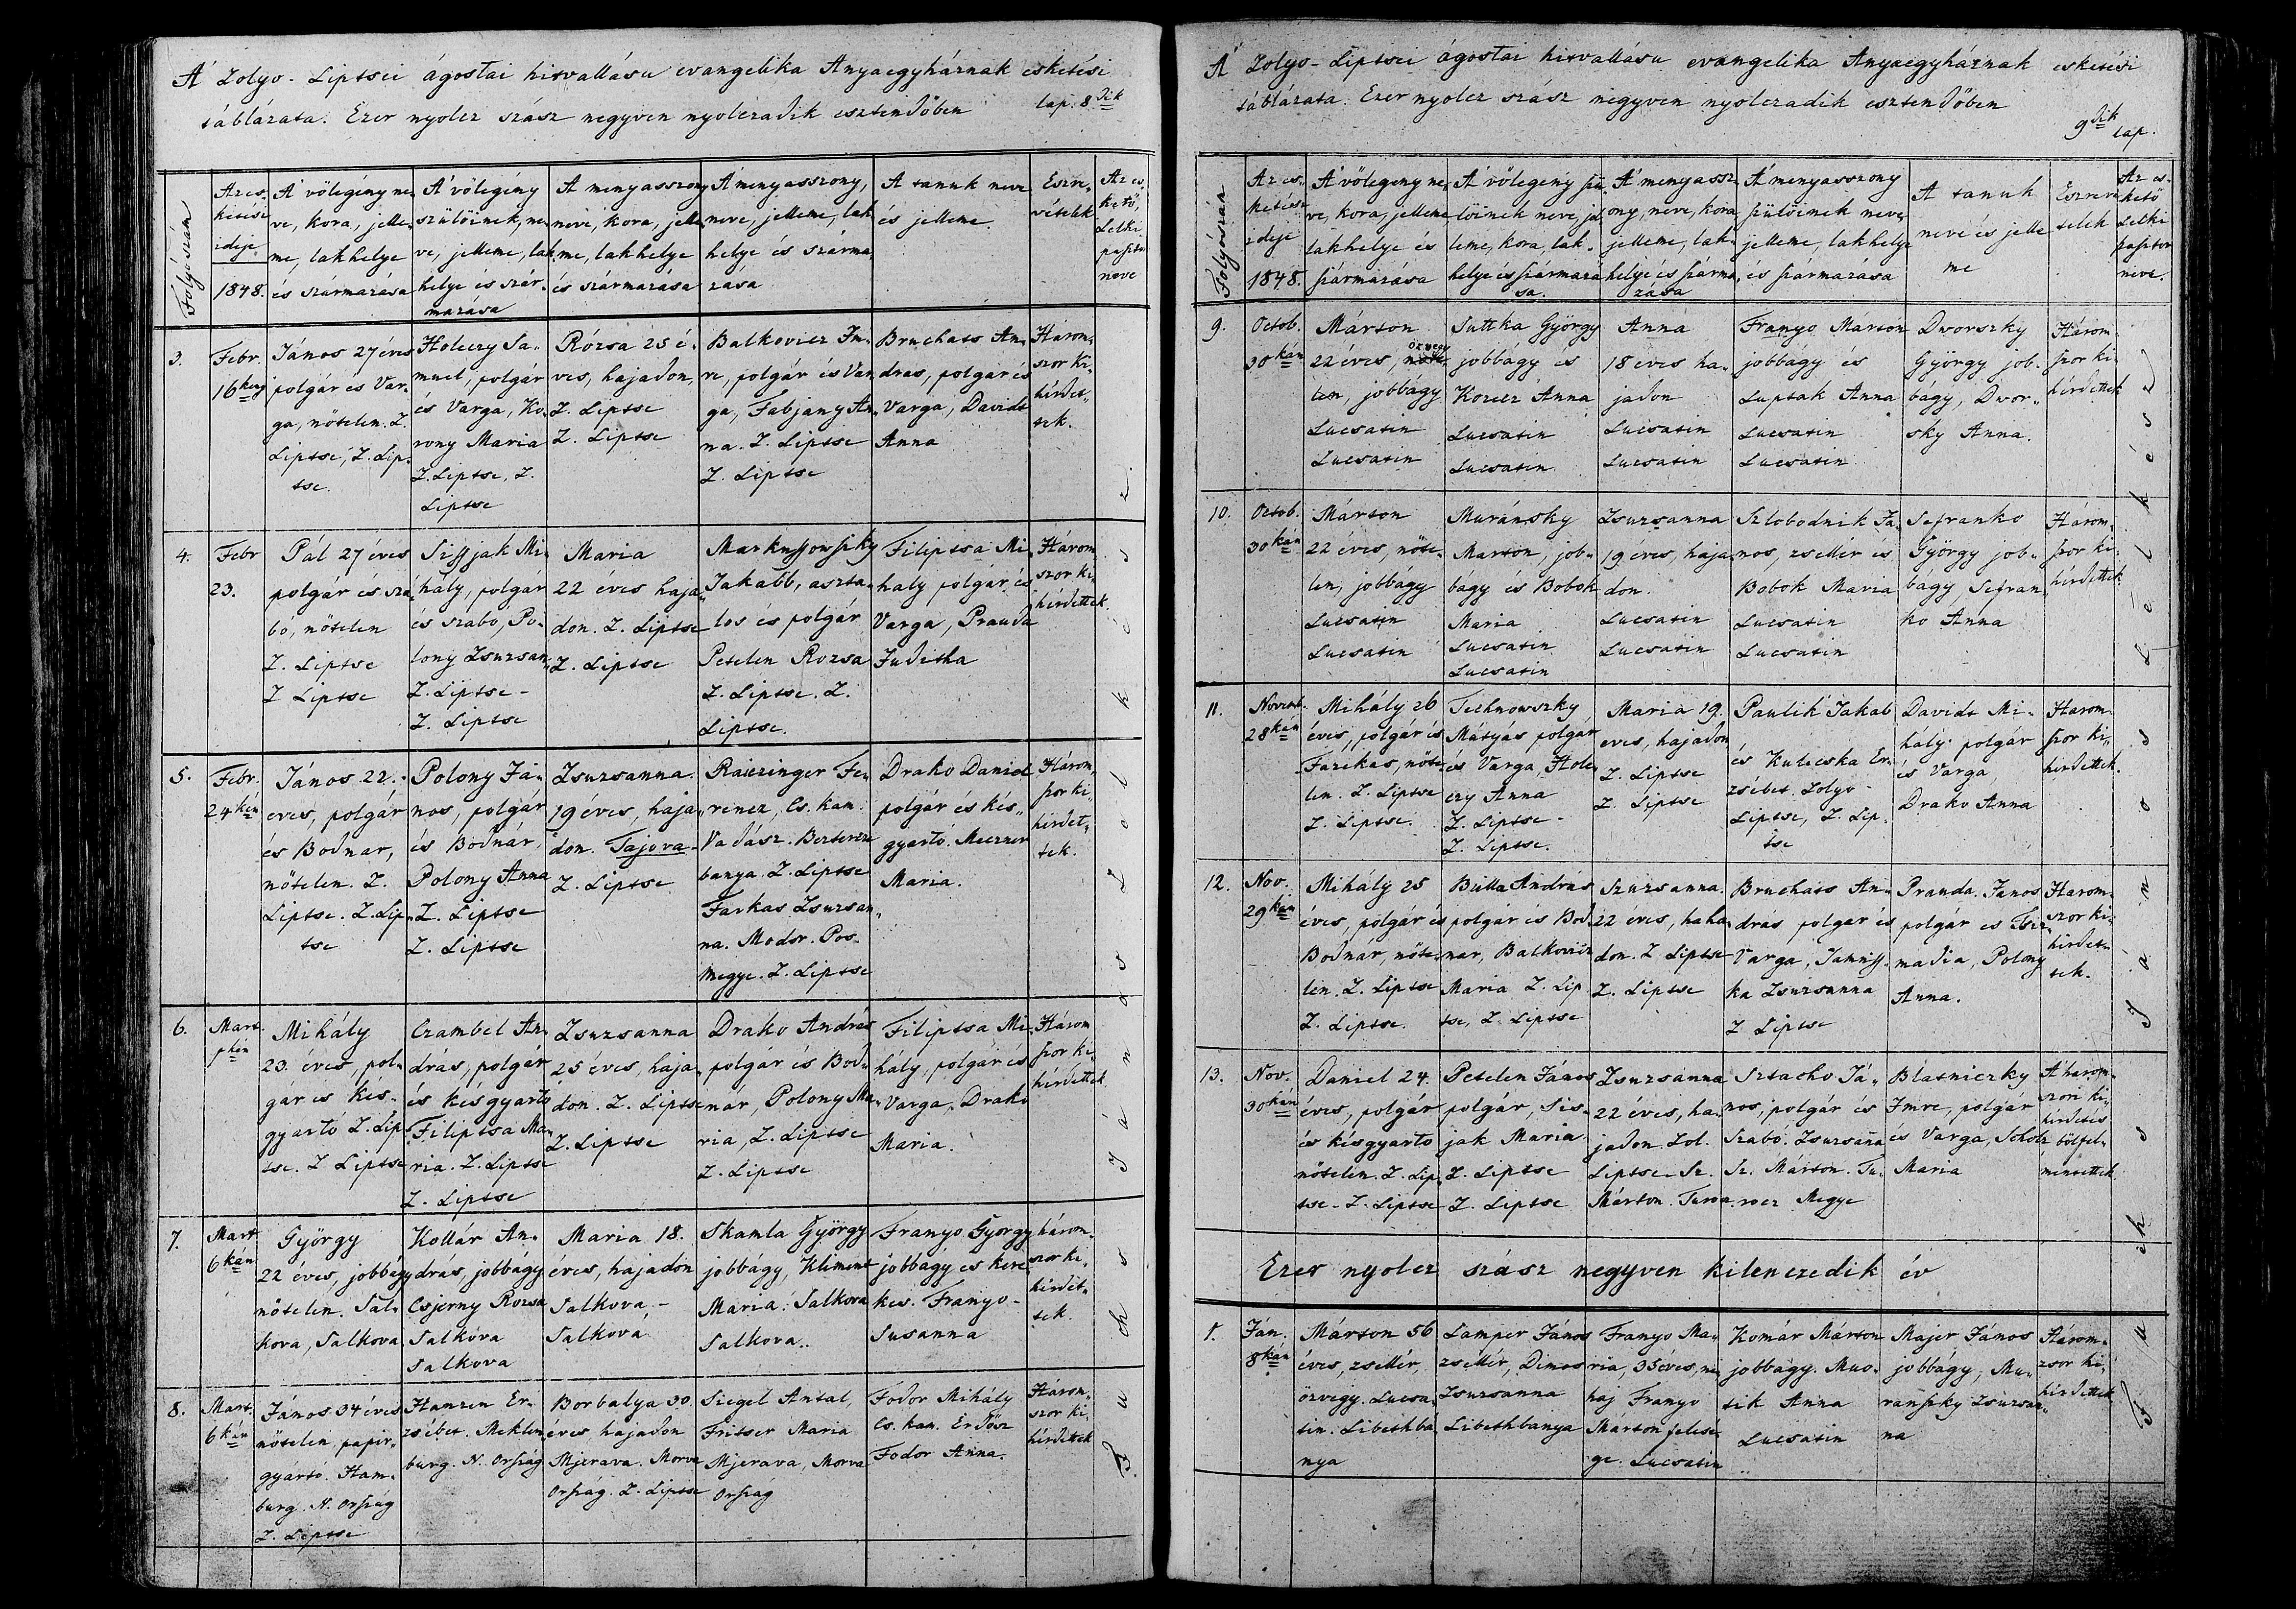 A' Zolyo-Liptsei ágostai hitvallásu evangelika Anyaegyháznak esketési
táblázata. Ezer nyolcz szász negyven nyolczadik esztendőben lap. 8dik
Folyó szám
Az es-
ketési
ideje
1848.
A' völegény ne-
ve, kora, jelle-
me, lakhelye
és származása
A' völegény
szülöinek, ne-
ve, jelleme, lak
helye és szár-
mazása
A menyasszony
neve, kora, jelle
me, lakhelye
és származása
A' menyasszony,
neve, jelleme, lak
helye és szárma
zása
A tanuk neve
és jelleme.
Eszre-
vételek
Az es-
kető,
Lelki
pasztor
neve
3.
Febr.
16
János 27 éves
polgár és Var-
ga, nötelen. Z.
Liptse, Z. Lip-
tse.
Holeczy Sa-
muel, polgár
és Varga, Ko-
rony Maria
Z. Liptse, Z.
Liptse
Rózsa 25 é-
ves, hajadon,
Z. Liptse
Z. Liptse
Balkovicz Im-
re, polgár és Var
ga, Fabjany An-
na. Z. Liptse
Z. Liptse
Bruchats An-
dras, polgár és
Varga, Davidt
Anna
Harom-
szor ki-
hirdet-
tek.
4.
Febr
23.
Pál 27 éves
polgár és sza-
bó, nötelen
Z. Liptse
Z Liptse
Sissjak Mi-
hály, polgár
és szabo, Po-
lony Zsuzsan-
Z. Liptse -
Z. Liptse
Maria
22 éves haja-
don. Z. Liptse
Z. Liptse
Jakabb, aszta-
los és polgár
Petelen Rozsa
Z. Liptse. Z.
Liptse.
Filiptsa Mi-
haly polgár és
Varga, Prauda
Juditha
Három
szor ki-
hirdettek.
5.
Febr.
24kén
János 22.
eves, polgár
és Bodnar,
nötelen. Z.
Liptse. Z. Lip-
tse
Polony Já-
nos, polgár
és Bodnár,
Polony Anna
Z. Liptse
Z. Liptse
Zsuzsanna.
19 éves, haja-
don. Tajova-
Z. Liptse
Raiczinger Fe-
rencz, Cs. kam.
Vadász. Besztercze
banya. Z. Liptse
Farkas Zsuzsan-
na. Modor. Pos-
megye. Z. Liptse
Drako Daniel
polgár és kés-
gyartó. Meczner
Maria.
Három-
szor ki-
hirdet-
tek.
6.
Mart.
Mihály
23. éves, pol-
gár és kés-
gyartó Z. Lip
tse. Z Liptse
Czambel An-
drás, polgár
és késgyarto
Filiptsa Ma-
ria. Z. Liptse
Z. Liptse
Zsuzsanna
25 éves, haja-
don. Z. Liptse
Z. Liptse
Drako András
polgár és Bod-
nár, Polony Ma-
ria, Z. Liptse
Z. Liptse
Filiptsa Mi-
hály, polgár és
Varga, Drako
Maria.
Három
szor ki-
hirdettek
7.
Mart
6kán
György
22 éves, jobbágy
nötelen. Sal-
kova, Salkova
Kollár An-
drás, jobbágy
Csjerny Rozsa
Salkóva
Salkova
Maria 18.
éves, hajadon
Salkova -
Salkova
Skamla György
jobbágy, Kliment
Maria. Salkova
Salkova..
Franyo György
jobbágy es kere
kes. Franyo-
Susanna
három-
szor ki-
hirdet-
tek.
8.
Mart.
6kan
János 34 éves
nötelen papir-
gyártó. Ham-
burg. N. Ország
Z. Liptse
Hamzen Er-
zsébet. Meklen
burg. N. Ország
Borbalya 30.
éves, hajadon
Mjerava. Morva
Ország. Z. Liptse
Siegel Antal,
Fritser Maria
Mjerava, Morva
Ország
Fodor Mihály
Cs. kam. Erdősz
Fodor Anna.
Három-
szor ki-
hirdettek
János Lelkész.
A' Zolyo-Liptsei ágostai hitvallásu evangelika Anyaegyháznak esketési
táblázata. Ezer nyolcz szász negyven nyolczadik esztendőben
9dik lap.
Folyószám
Az es-
ketése
ideje
1848.
A' völegény ne-
ve, kora, jelleme
lakhelye és
származása
A' völegény szü-
löinek neve, jel
leme, kora, lak-
helye és származá
sa.
A' menyassz-
ony, neve, kora
jelleme, lak-
helye és szárma
zása
A' menyasszony
szülöinek neve
jelleme, lakhelye
és származása
A tanuk
neve és jelle
me
Eszreve
telek
Az es-
kető
Lelki
pasztor
neve.
9.
Octob.
30kán
Márton
22 éves, özvegy
len, jobbágy
Lucsatin
Lucsatin
Suttka György
jobbágy és
Korecz Anna
Lucsatin
Lucsatin
Anna
18 éves ha-
jadon
Lucsatin
Lucsatin
Franyo Márton
jobbágy és
Luptak Anna
Lucsatin
Lucsatin
Dworszky
György job-
bágy, Dwor-
sky Anna.
Három-
szor ki-
hirdettek
10.
Octob.
30kán
Márton
22 éves, nöte-
len, jobbágy
Lucsatin
Lucsatin
Muránsky
Marton, job-
bagy és Bobok
Maria
Lucsatin
Lucsatin
Zsuzsanna
19 éves, haja-
don.
Lucsatin
Lucsatin
Szlobodnik Ja-
nos, zsellér és
Bobok Maria
Lucsatin
Lucsatin
Sefranko
György job-
bágy Sefran
ko Anna
Három-
szor ki-
hirdettek
11.
Novemb.
28kán
Mihály 26
éves, polgár és
Fazekas, nöte
len. Z. Liptse
Z. Liptse.
Technowszky
Mátyás polgár
és Varga, Hole
czy Anna
Z. Liptse -
Z. Liptse.
Maria 19.
eves, hajadon
Z. Liptse
Z. Liptse
Paulik Jakab
és Kulecska Er-
zsébet. Zolyo-
Liptse, Z. Lip-
tse
Davidt Mi-
hály polgár
és Varga,
Drako Anna
Harom-
szor ki-
hirdettek.
12.
Nov.
29kan
Mihály 25
éves, polgár és
Bodnár, nöte-
len. Z. Liptse
Z. Liptse.
Bulla András
polgár és Bod
nar, Balkovicz
Maria Z. Lip
tse, Z. Liptse
Szuzsanna.
22 éves, haha
don. Z Liptse
Z. Liptse
Bruchats An-
drás polgár és
Varga, Jamniss-
ka Zsuzsanna
Z Liptse
Prauda. Janos
polgár es Tsiz-
madia, Polony
Anna.
Harom-
szor ki-
hirdet-
tek.
13.
Nov.
30kan
Daniel 24.
éves, polgár
és késgyarto
nötelen. Z. Lip-
tse - Z. Liptse
Petelen János
polgár, Sis-
jak Maria
Z. Liptse
Z. Liptse
Zsuzsanna
22 éves, ha-
jadon. Zol.
Liptse - Sz.
Márton. Turo
Sztacho Já-
nos, polgár és
Szabó. Zsuzsanna
Sz. Márton. Tu-
rocz Megye
Blatniczky
Imre, polgár
és Varga, Scholz
Maria
A' harom-
szori ki-
hirdetés
bölfel-
mentettek
Ezer nyolcz szász negyven kilenczedik év
1.
Ján.
8kán
Márton 56
éves, zsellér,
özvegy. Lucsa-
tin. Libethbá
nya
Lamper János
zsellér, Dimos
Zsuzsanna
Libethbanya
Franyo Ma-
ria, 35 éves, né
haj Franyo
Márton felesé-
ge. Lucsatin
Komár Márton
jobbágy. Muo-
tik Anna
Lucsatin
Majer János
jobbágy, Mu-
ránszky Zsuzsan-
na
Három-
zsor ki-
hirdettek
János Lelkész